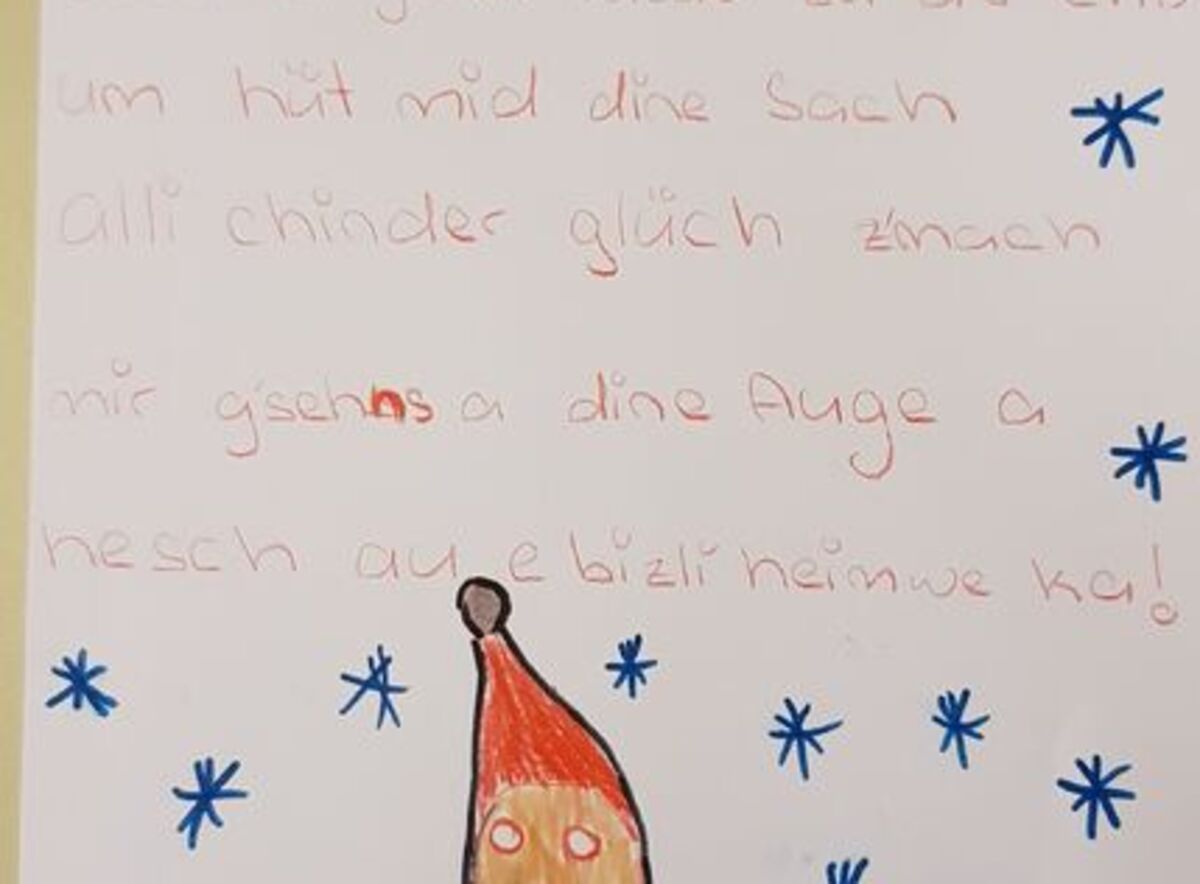 um hüt mid dine Sach
alli chinder glüch z'mach
mir g'sehns a dine Auge a
hesch au e bizli heimwe ka!